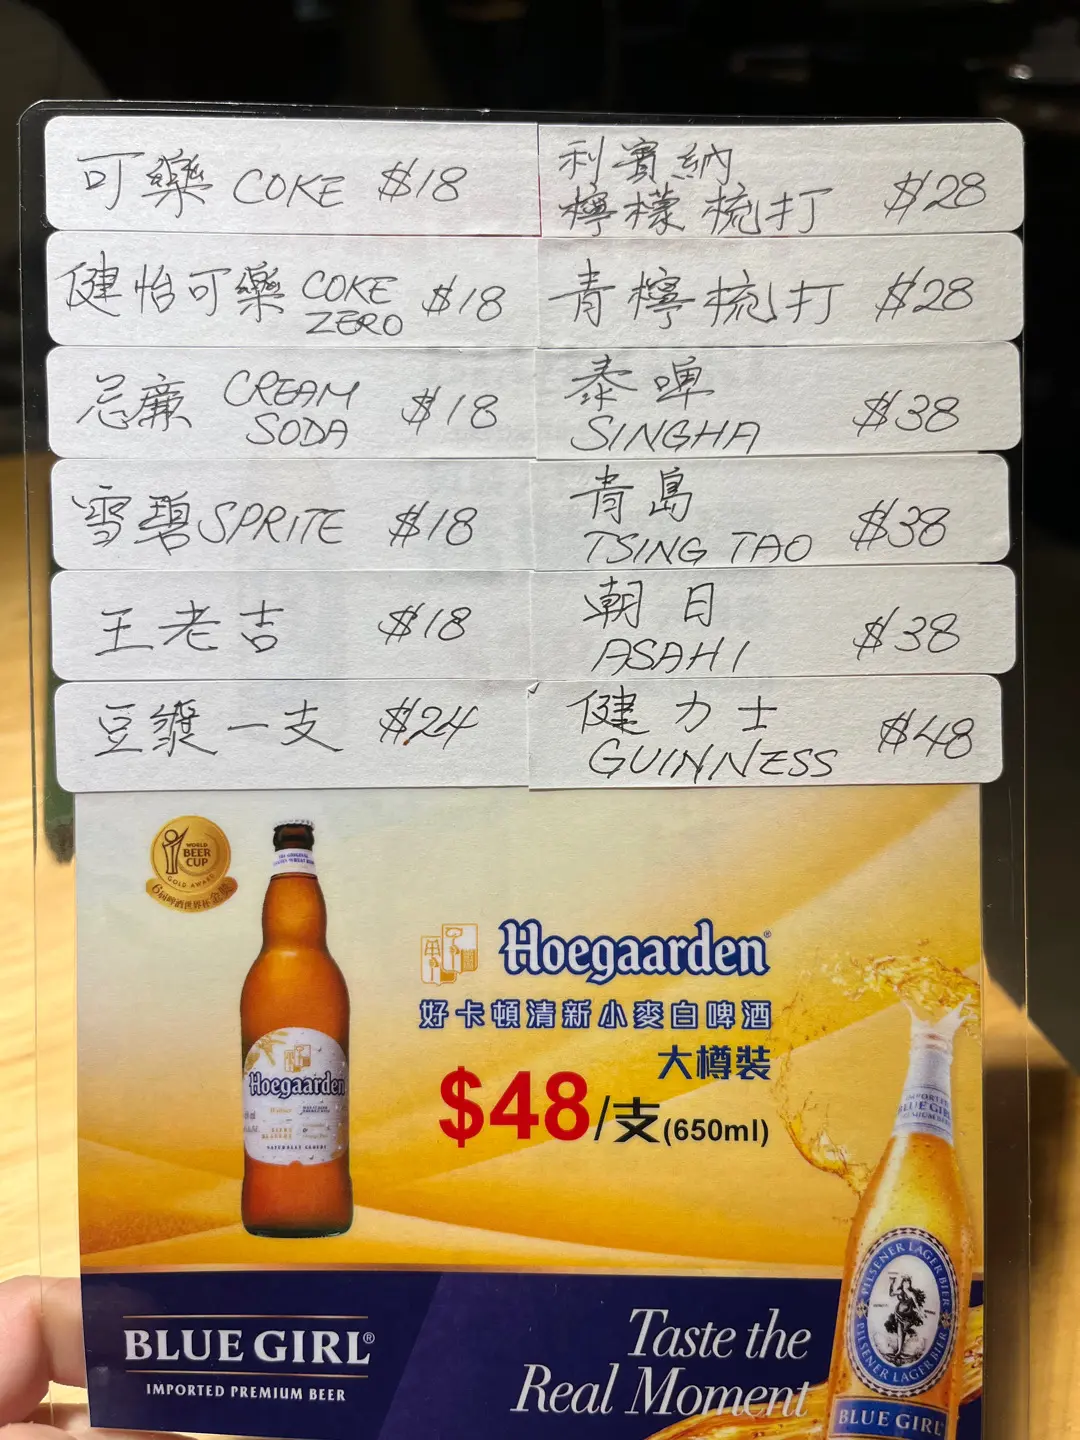 可樂 COKE $18
健怡可樂 COKE ZERO $18
忌廉 CREAM SODA $18
雪碧 SPRITE $18
王老吉 $18
豆漿一支 $24
利賓納
檸檬梳打 $28
青檸梳打 $28
泰啤
SINGHA $38
青島
TSING TAO $38
朝日
ASAHI $38
健力士
GUINNESS $48
WORLD
BEER
CUP
GOLD AWARD
6屆啤酒世界杯金獎
Hoegaarden
Hoegaarden®
好卡頓清新小麥白啤酒
大樽裝
$48/支(650ml)
BLUE GIRL®
IMPORTED PREMIUM BEER
Taste the
Real Moment
IMPORTED
BLUE GIRL
PREMIUM BEER
PILSENER LAGER BIER
PILSENER LAGER BIER
BLUE GIRL